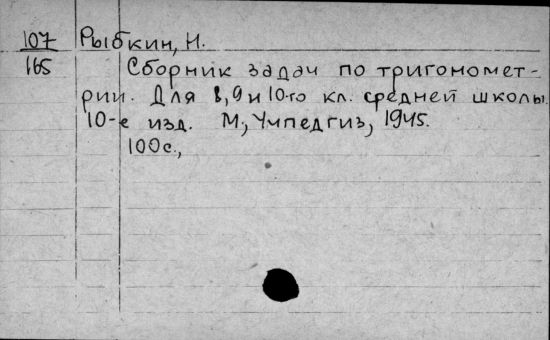 107 Рыбкин, Н.
165 Сборник задач по тригономет-
рии. Для 8, 9 и 10-го кл. средней школы.
10-е изд. М., Учпедгиз, 1945.
100с.,